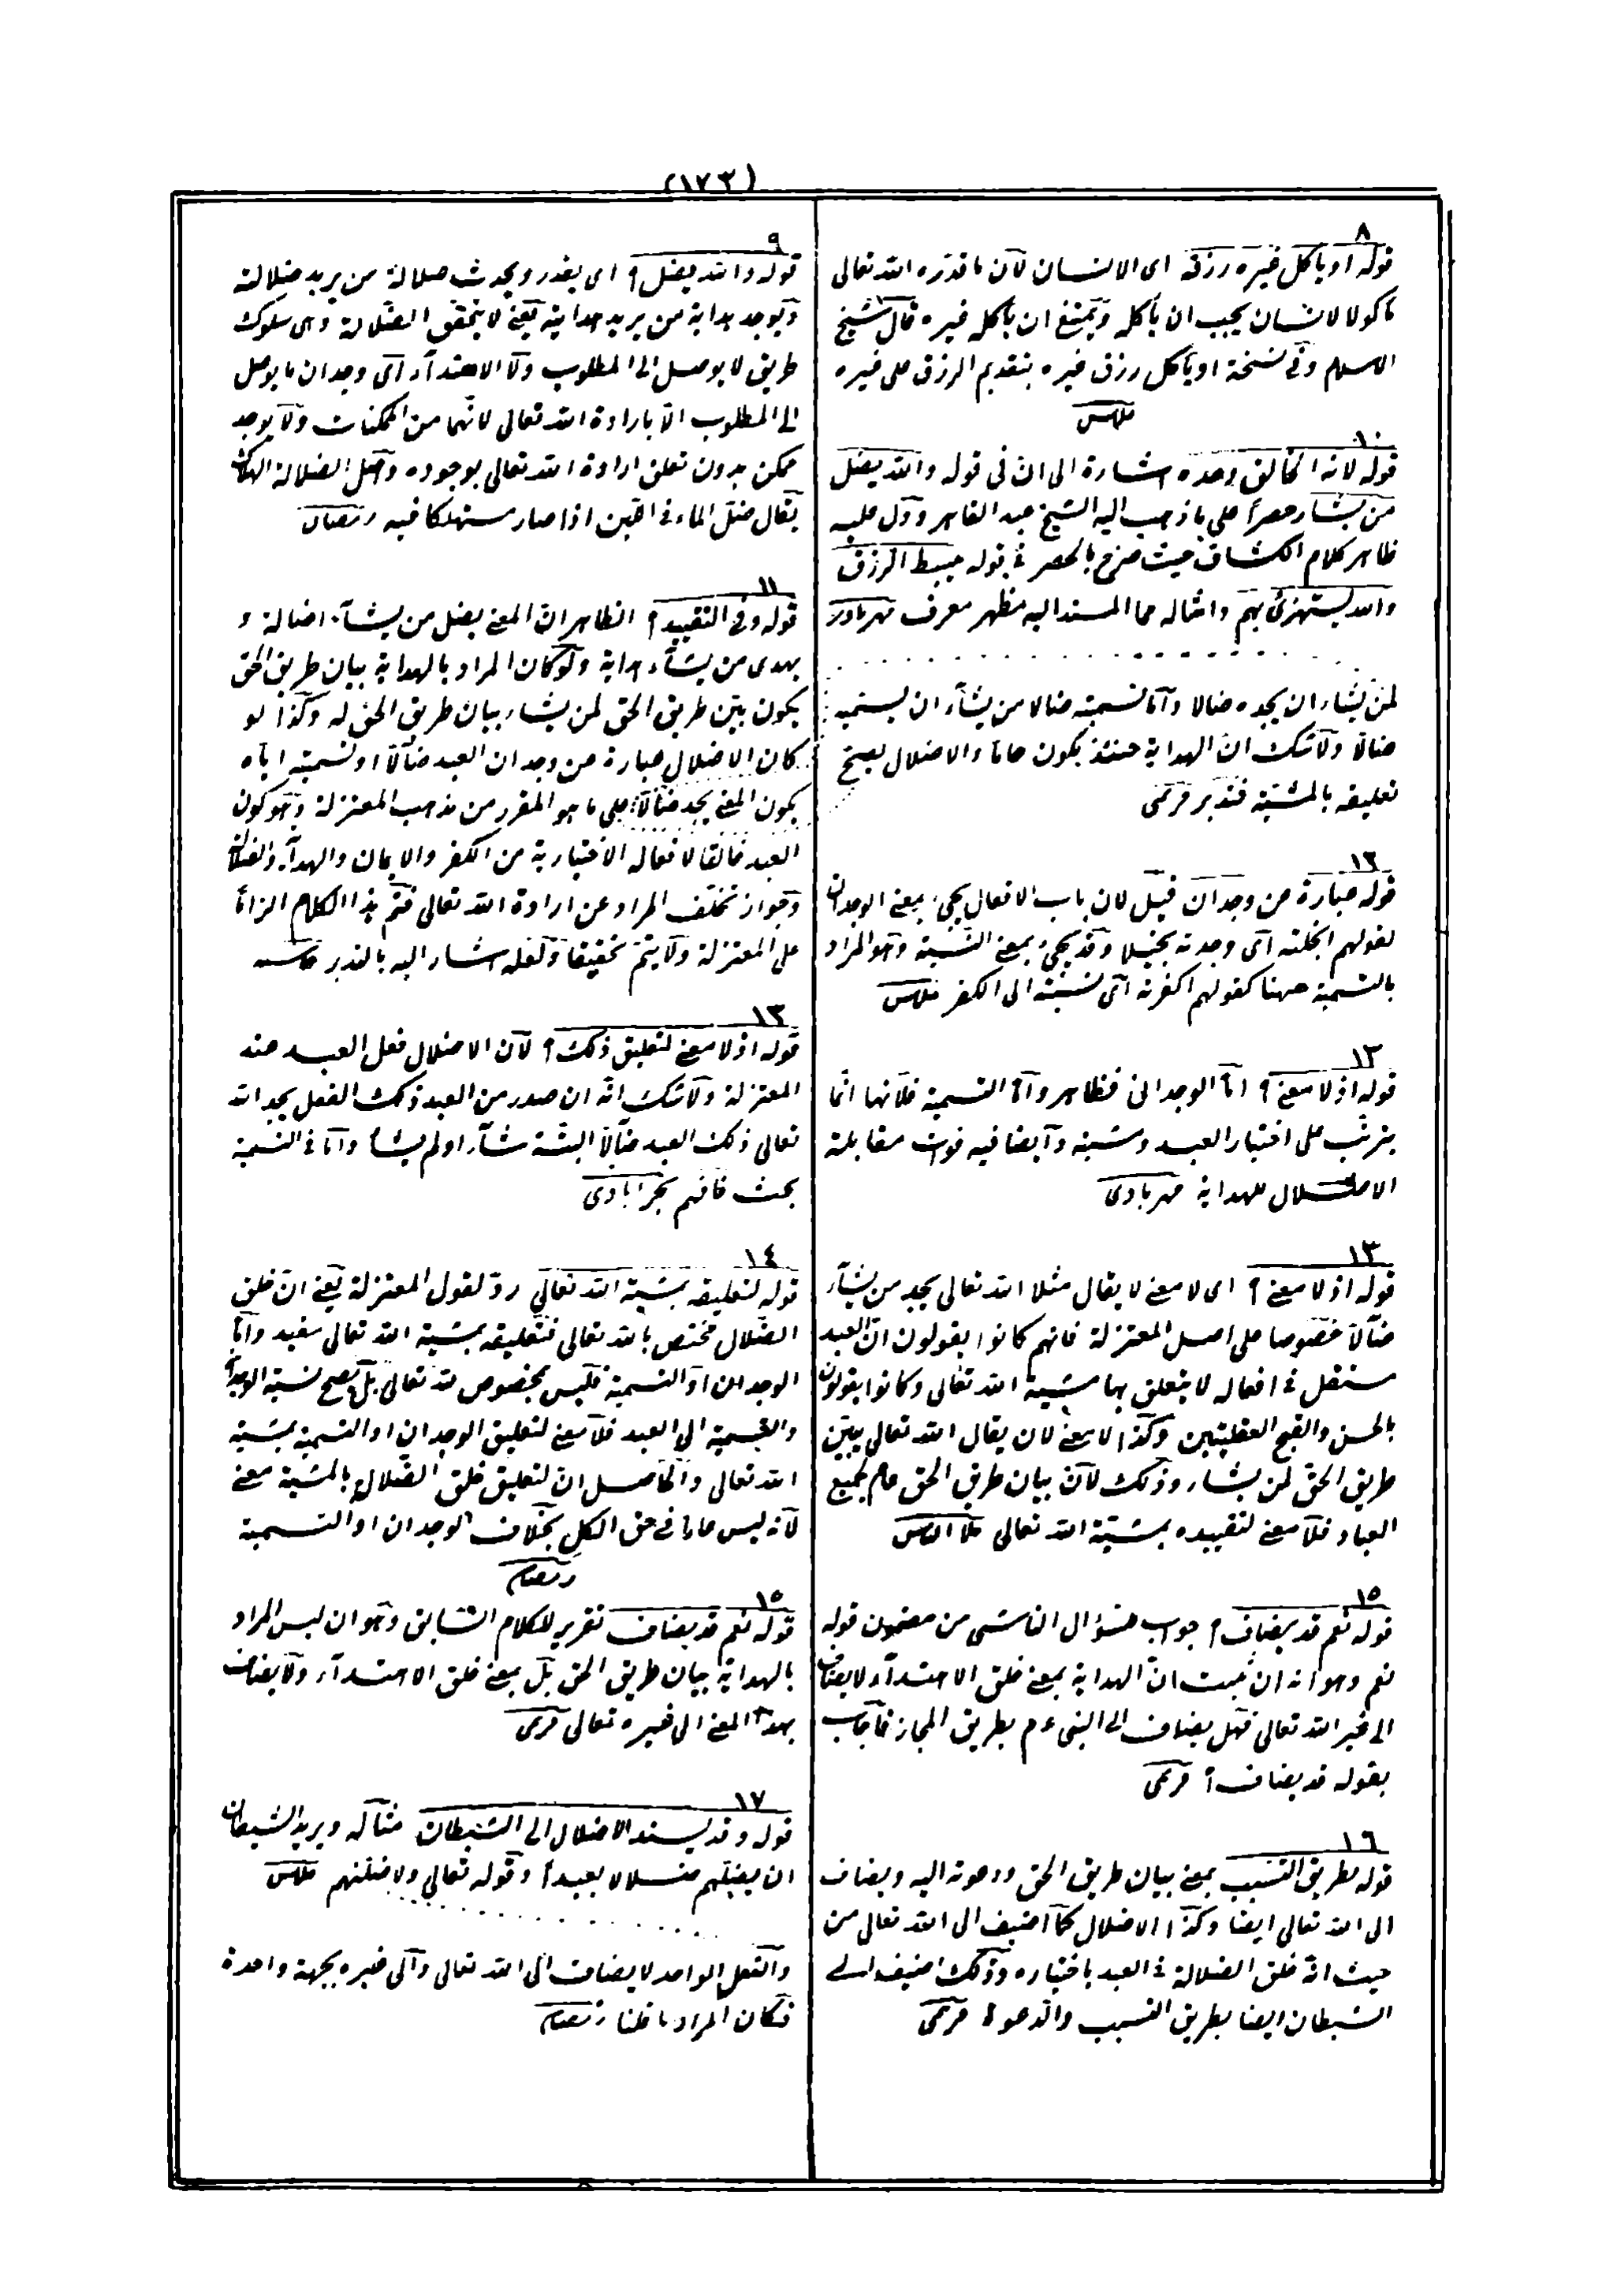 (١٧٣)
٨
قوله او يأكل غيره رزقه اى الانسان لان ما قدره الله تعالى
مأكولا لانسان يجب ان يأكله ويمتنع ان يأكله غيره قال شيخ
الاسلام وفى نسخة او يأكل رزق غيره بتقديم الرزق على غيره
١٠
قوله لانه الخالق وحده اشارة الى ان فى قوله والله يضل
من يشاء حصرا على ما ذهب اليه الشيخ عبد القاهر ودل عليه
ظاهر كلام الكشاف حيث صرح بالحصر فى قوله يبسط الرزق
والله يستهزئ بهم وامثاله مما المسند اليه مظهر معرف
لمن يشاء ان يجده ضالا واما تسميته ضالا من يشاء ان يسميه
ضالا ولا شك ان الهداية حينئذ يكون عاما والاضلال يصح
تعليقه بالمشية فتدبر قرمى
١٢
قوله عبارة عن وجدان قيل لان باب الافعال يجئ بمعنى الوجدان
لقولهم ابخلته اى وجدته بخيلا وقد يجئ بمعنى النسبة وهو المراد
بالتسمية ههنا كقولهم اكفرته اى نسبته الى الكفر
١٣
قوله اذ لا معنى ا اما الوجدانى فظاهر واما التسمية فلانها انما
يترتب على اختيار العبد ومشيته وايضا فيه فوات مقابلة
الاضلال للهداية مهربادى
١٣
قوله اذ لا معنى ا اى لا معنى لا يقال مثلا الله تعالى يجد من يشاء
ضالا خصوصا على اصل المعتزلة فانهم كانوا يقولون ان العبد
مستقل فى افعاله لا يتعلق بها مشية الله تعالى وكانوا يقولون
بالحسن والقبح العقليين وكذا لا معنى لان يقال الله تعالى يبين
طريق الحق لمن يشاء وذلك لان بيان طريق الحق عام لجميع
العباد فلا معنى لتقييده بمشية الله تعالى ملا الياس
١٥
قوله نعم قد يضاف ا جواب لسؤال الناشى من مضمون قوله
نعم وهو انه ان ثبت ان الهداية بمعنى خلق الاهتداء لا يضاف
الى غير الله تعالى فهل يضاف الى النبى ءم بطريق المجاز فاجاب
بقوله قد يضاف ا قرمى
١٦
قوله بطريق التسبب بمعنى بيان طريق الحق ودعوته اليه ويضاف
الى الله تعالى ايضا وكذا الاضلال كما اضيف الى الله تعالى من
حيث انه خلق الضلالة فى العبد باختياره وذلك اضيف الى
الشيطان ايضا بطريق التسبب والدعوة قرمى
٩
قوله والله يضل ا اى يقدر ويحدث ضلالة من يريد ضلالته
ويوجد هداية من يريد هدايته يعنى لا يتحقق الضلالة وهى سلوك
طريق لا يوصل الى المطلوب ولا الاهتداء اى وجدان ما يوصل
الى المطلوب الا بارادة الله تعالى لانهما من الممكنات ولا يوجد
ممكن بدون تعلق ارادة الله تعالى بوجوده واصل الضلالة الهلاك
يقال ضل الماء فى اللبن اذا صار مستهلكا فيه رمضان
١١
قوله وفى التقييد ا الظاهر ان المعنى يضل من يشاء اضالة و
يهدى من يشاء هداية ولو كان المراد بالهداية بيان طريق الحق
يكون يبين طريق الحق لمن يشاء بيان طريق الحق له وكذا لو
كان الاضلال عبارة عن وجدان العبد ضالا او تسميته اياه
يكون المعنى يجد ضالا على ما هو المقرر من مذهب المعتزلة وهو كون
العبد خالقا لافعاله الاختيارية من الكفر والايمان والهداء والضلالة
وجواز تخلف المراد عن ارادة الله تعالى فتم هذا الكلام الزاما
على المعتزلة ولا يتم تحقيقا ولعله اشار اليه بالتدبر
١٣
قوله اذ لا معنى لتعليق ذلك ا لان الاضلال فعل العبد عند
المعتزلة ولا شك انه ان صدر من العبد ذلك الفعل يجد الله
تعالى ذلك العبد ضالا البتة شاء او لم يشأ واما فى التسمية
بحث فافهم بحرابادى
١٤
قوله لتعليقه بمشية الله تعالى رد لقول المعتزلة يعنى ان خلق
الضلال مختص بالله تعالى فتعليقه بمشية الله تعالى مفيد واما
الوجدان او التسمية فليس بمخصوص لله تعالى بل يصح نسبة الوجدان
والتسمية الى العبد فلا معنى لتعليق الوجدان او التسمية بمشية
الله تعالى والحاصل ان لتعليق خلق الضلال بالمشية معنى
لانه ليس عاما فى حق الكل بخلاف الوجدان او التسمية
رمضان
١٥
قوله نعم قد يضاف تقرير للكلام السابق وهو ان ليس المراد
بالهداية بيان طريق الحق بل بمعنى خلق الاهتداء ولا يضاف
بهذا المعنى الى غيره تعالى قرمى
١٧
قوله وقد يسند الاضلال الى الشيطان مثاله ويريد الشيطان
ان يضلهم ضلالا بعيدا وقوله تعالى ولاضلنهم
والفعل الواحد لا يضاف الى الله تعالى والى غيره بجهة واحدة
فكان المراد ما قلنا رمضان